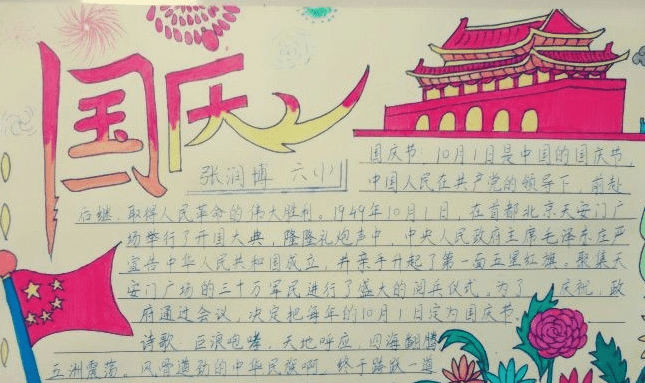 国庆
张润博 六(小)
国庆节:10月1日是中国的国庆节,
中国人民在共产党的领导下,前赴
后继,取得人民革命的伟大胜利。1949年10月1日,在首都北京天安门广
场举行了开国大典,隆隆礼炮声中,中央人民政府主席毛泽东庄严
宣告中华人民共和国成立,并亲手升起了第一面五星红旗。聚集天
安门广场的三十万军民进行了盛大的阅兵仪式。为了 庆祝,政
府通过会议,决定把每年的10月1日定为国庆节。
诗歌:巨浪咆哮,天地呼应,四海翻腾
五洲震荡。风骨遒劲的中华民族啊,终于踏跃一道